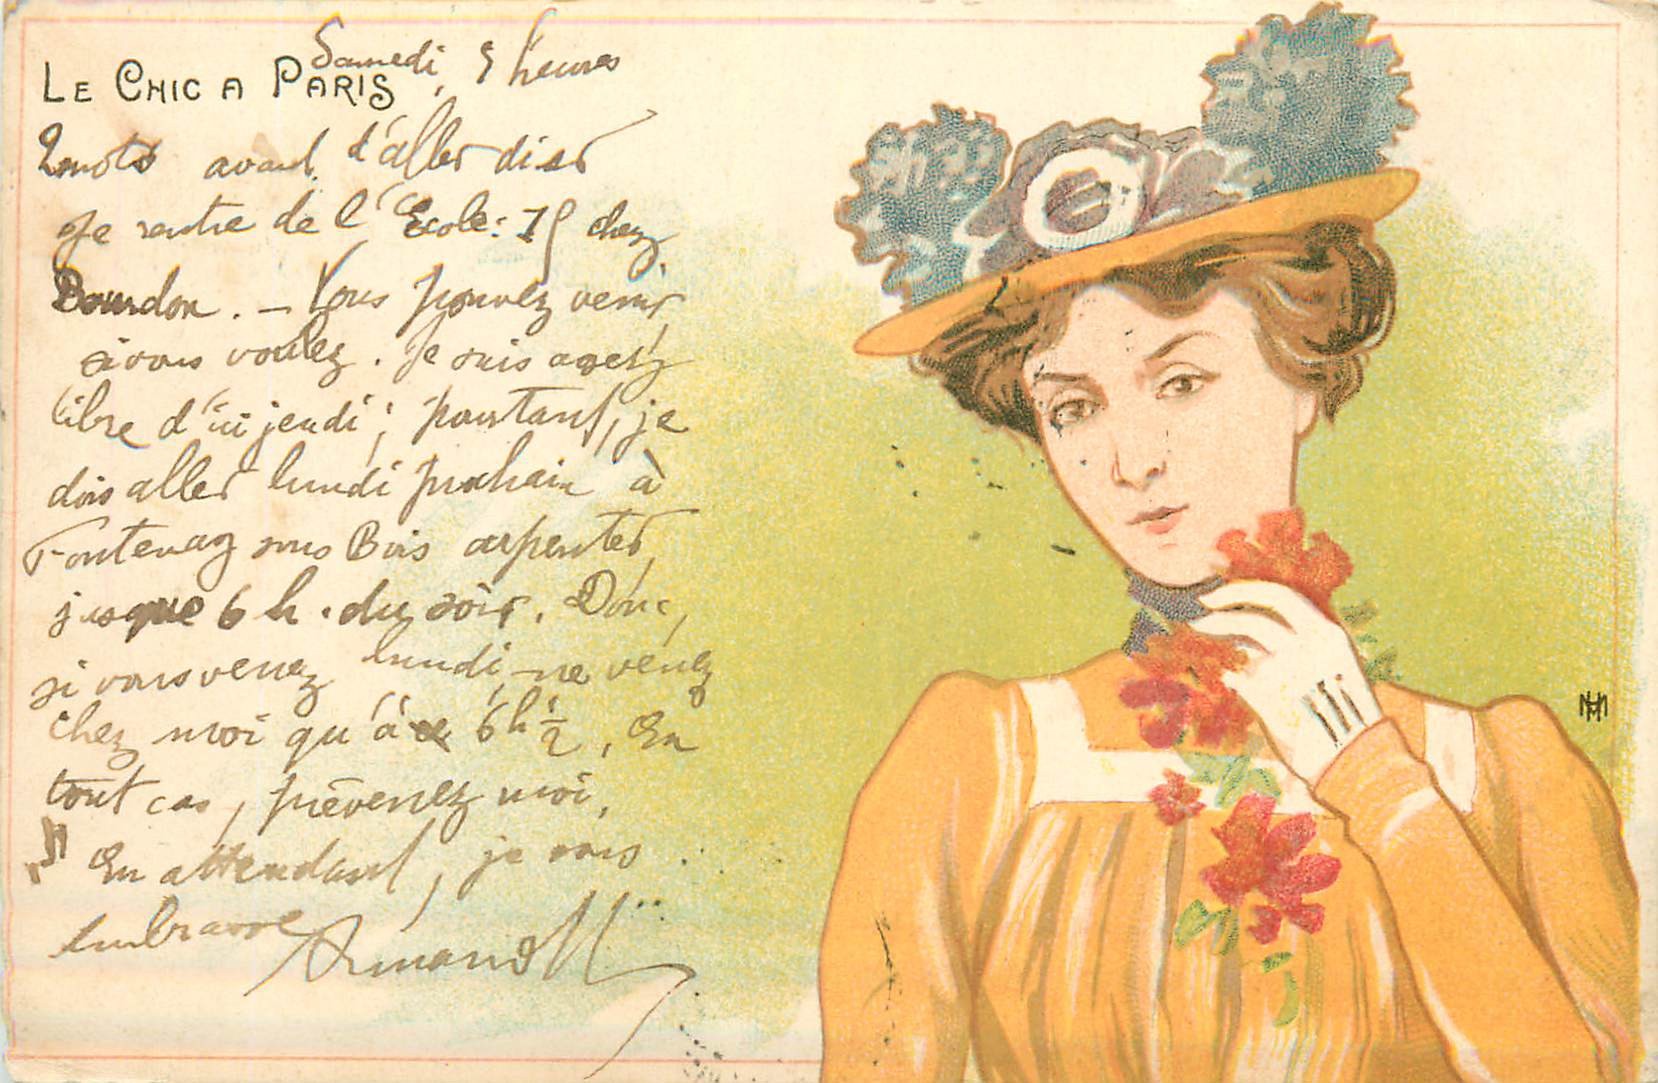 LE CHIC A PARIS
Samedi, 5 heures
2 mots avant d'aller diner
Je rentre de l'Ecole: chez
Bourdon. – Vous pouvez venir
si vous voulez. Je suis assez
libre d'ici jeudi; pourtant, je
dois aller lundi prochain à
Fontenay sous Bois arpenter,
jusque 6 h. du soir. Donc,
si vous venez lundi ne venez
chez moi qu'à 6h ½. En
tout cas, prévenez moi.
En attendant, je vous
embrasse Armand
HM